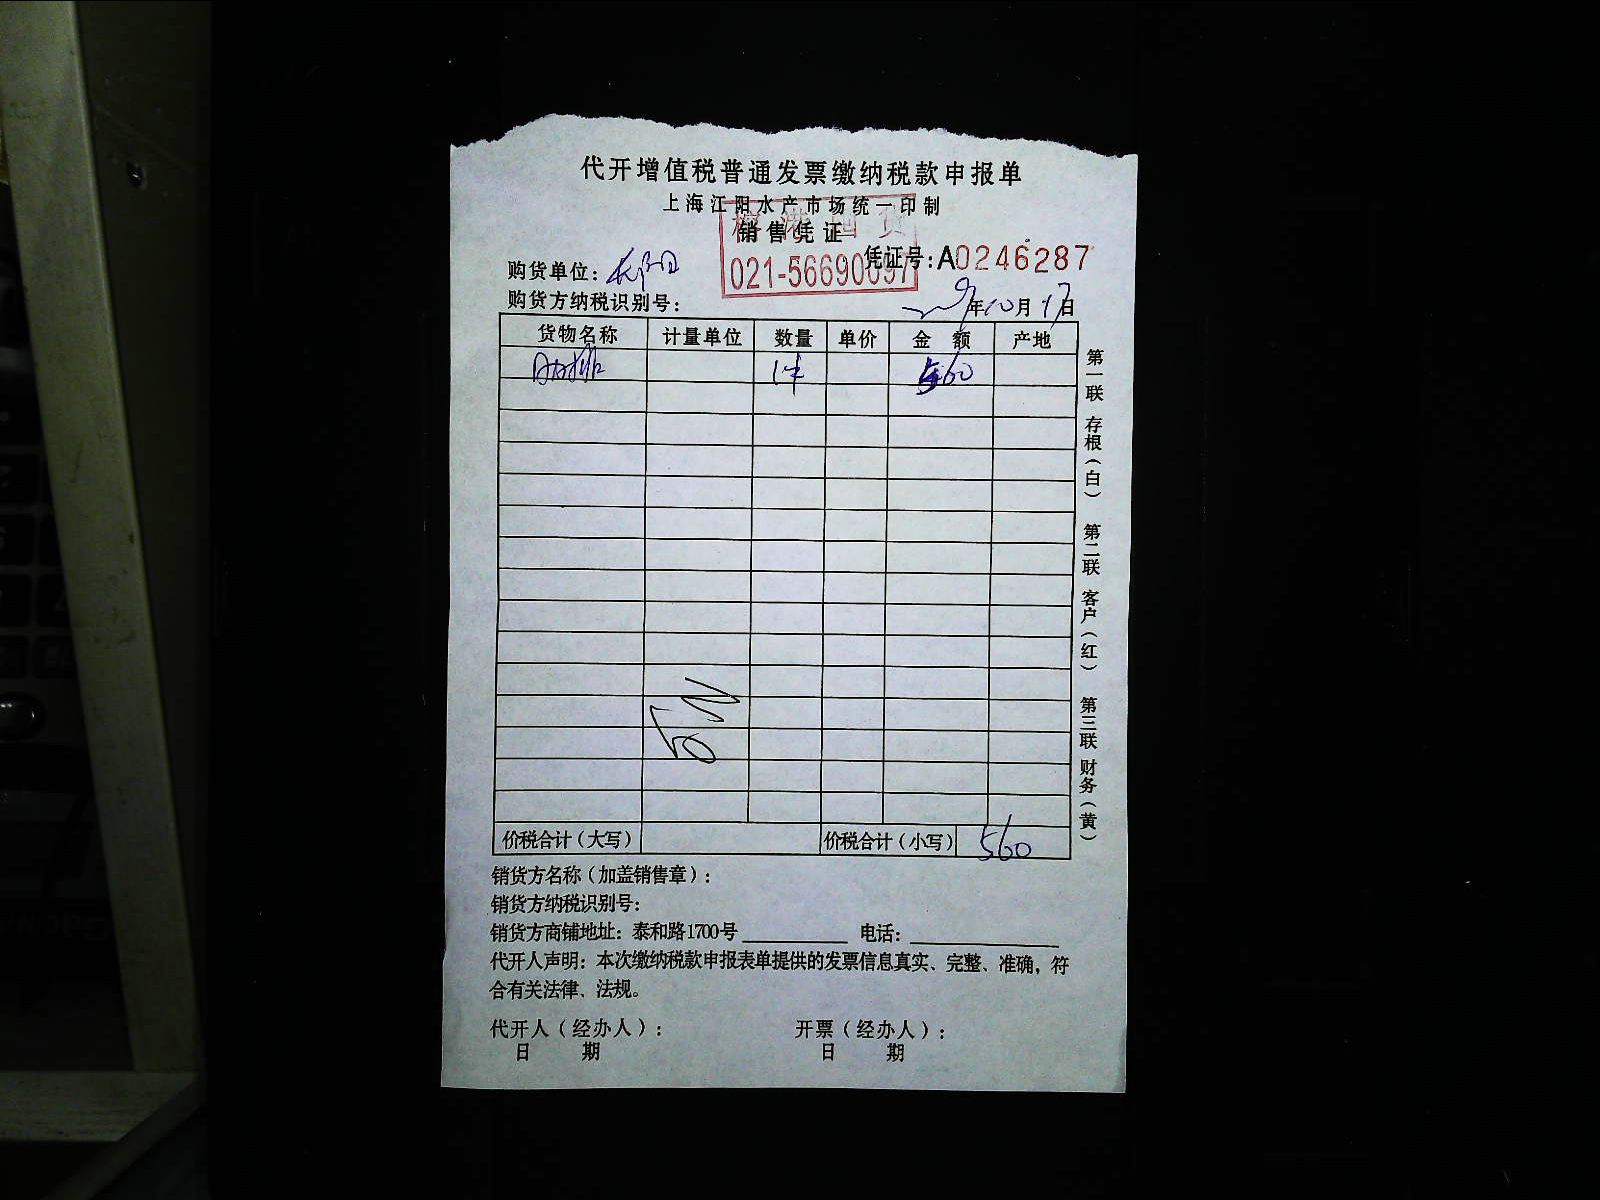 代开增值税普通发票缴纳税款申报单
上海江阴水产市场统一印制
销售凭证
021-56690697
凭证号:A0246287
购货单位:
购货方纳税识别号:
年10月17日
货物名称 计量单位 数量 单价 金额 产地
1件 560
第一联 存根(白) 第二联 客户(红) 第三联 财务(黄)
价税合计(大写) 价税合计(小写) 560
销货方名称(加盖销售章):
销货方纳税识别号:
销货方商铺地址:泰和路1700号 电话:
代开人声明:本次缴纳税款申报表单提供的发票信息真实、完整、准确,符
合有关法律、法规。
代开人(经办人): 开票(经办人):
日期 日期